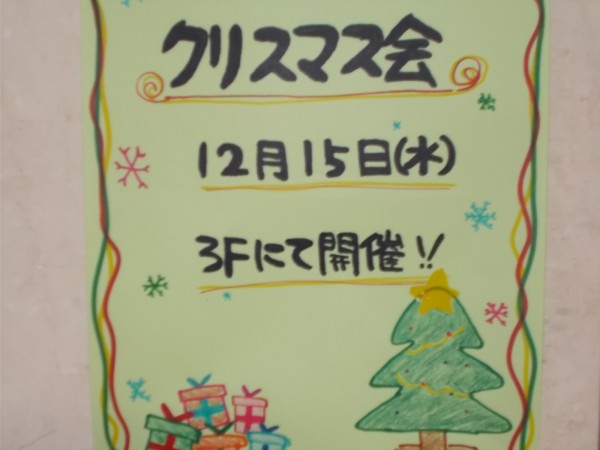 クリスマス会
12月15日(水)
3Fにて開催!!